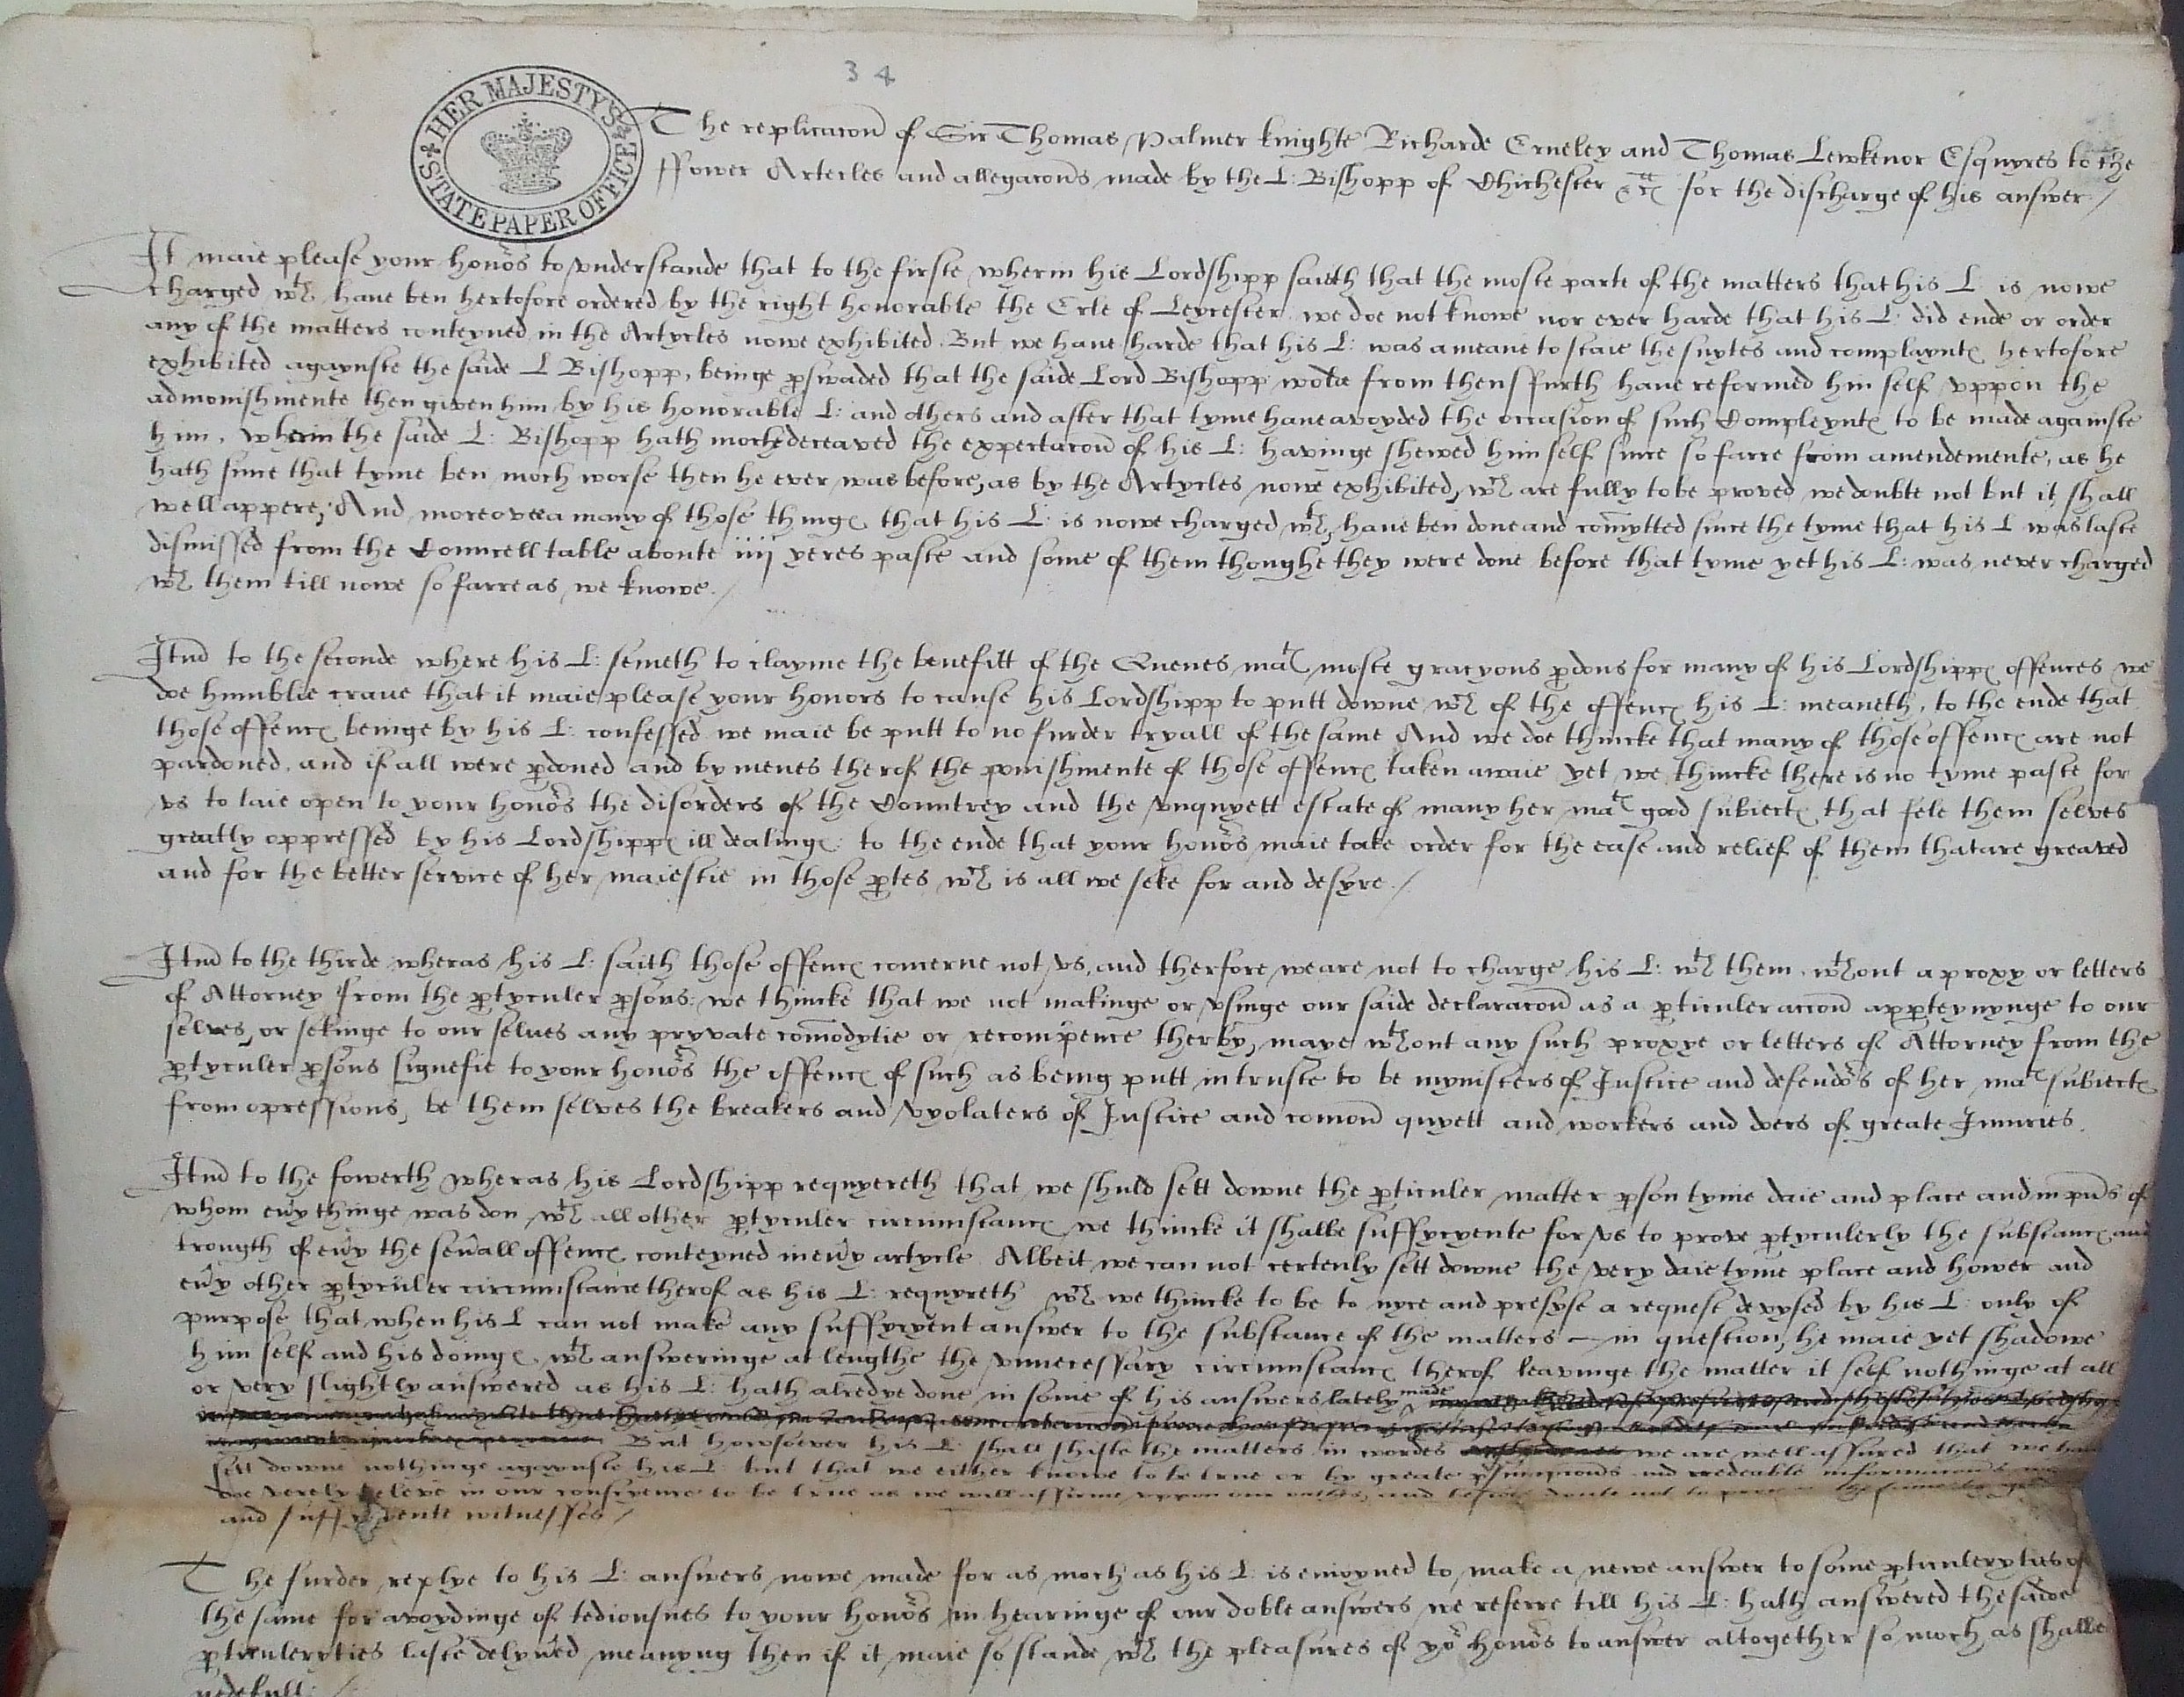 34
HER MAJESTY'S STATE PAPER OFFICE
The replicacon of Sir Thomas Palmer knighte Richarde Erneley and Thomas Lewkenor Esquyres to the
ffower Artecles and allegacons made by the L: Bishopp of Chichester &c for the discharge of his answer /
It maie please your honors to vnderstande that to the firste wherin his Lordshipp saieth that the moste parte of the matters that his L: is nowe
charged wth haue ben hertofore ordered by the right honorable the Erle of Leycester we doe not knowe nor ever harde that his L: did ende or order
any of the matters conteyned in the Artycles nowe exhibited. But we haue harde that his L: was a meane to staie the suytes and complaynts hertofore
exhibited agaynste the saide L Bishopp, beinge pswaded that the saide Lord Bishopp wolde from thensffurth haue reformed him self vppon the
admonishmente then given him by his honorable L: and others and after that tyme haue avoyded the occasion of such Compleynts to be made againste
him, wherin the saide L: Bishopp hath moche deceaved the expectacon of his L: havinge shewed him self since so farre from amendemente, as he
hath since that tyme ben moch worse then he ever was before, as by the Artycles nowe exhibited, wch are fully to be proved we doubte not but it shall
well appere, And moreover a many of those things that his L: is nowe charged wth, haue ben done and comytted since the tyme that his L was laste
dismissed from the Councell table aboute iiij yeres paste and some of them thoughe they were done before that tyme yet his L: was never charged
wth them till nowe so farre as we knowe. /
Itm to the seconde where his L: semeth to clayme the benefitt of the Quenes mats moste gracyous pdons for many of his Lordshipps offences we
doe humblie craue that it maie please your honors to cause his Lordshipp to putt downe wch of the offencs his L: meaneth, to the ende that
those offencs beinge by his L: confessed we maie be putt to no furder tryall of the same And we doe thincke that many of those offencs are not
pardoned, and if all were pdoned and by menes therof the punishmente of those offencs taken awaie yet we thincke there is no tyme paste for
vs to laie open to your honors the disorders of the Countrey and the vnquyett estate of many her mats good subiects that fele them selves
greatly oppressed by his Lordshipps ill dealings: to the ende that your honors maie take order for the ease and relief of them that are greaved
and for the better service of her maiestie in those ptes wch is all we seke for and desyre. /
Itm to the thirde wheras his L: saith those offencs concerne not vs, and therfore we are not to charge his L: wth them wthout a proxy or letters
of Attorney from the ptyculer psons: we thincke that we not makinge or vsinge our saide declaracon as a pticuler accon appteynynge to our
selves, or sekinge to our selues any pryvate comodytie or recompence therby, maye wthout any such proxye or letters of Attorney from the
ptyculer psons signefie to your honors the offencs of such as being putt in truste to be mynisters of Justice and defendors of her mats subiects
from opressions, be them selves the breakers and vyolaters of Justice and comon quyett and workers and doers of greate Iniuries.
Itm to the fowerth wheras his Lordshipp requyereth that we shuld sett downe the pticuler matter pson tyme daie and place and in pns of
whom evy thinge was don wth all other ptyculer circumstancs we thincke it shalbe suffycyente for vs to prove ptyculerly the substancs and
trougth of evy the sevall offencs conteyned in evy artycle Albeit we can not certenly sett downe the very daie tyme place and hower and
evy other ptyculer circumstance therof as his L: requyreth wch we thincke to be to nyce and presyse a request devysed by his L: only of
purpose that when his L can not make any suffycyent answer to the substance of the matters in question, he maie yet shadowe
him self and his doings wth answeringe at lengthe the vnnecessary circumstancs therof leavinge the matter it self nothinge at all
or very slightly answered as his L: hath alredye done in some of his answers lately made
But howsoever his L: shall shifte the matters in wordes we are well assured that we haue
sett downe nothinge agaynste his L: but that we either knowe to be true or by greate psumpcons and credeable informacons
doe verely beleve in our conscyence to be true as we will affirme vppon our oathes, and doute not to prove the same by good
and suffycyente witnesses /
The furder replye to his L: answers nowe made for as moch as his L: is enioyned to make a newe answer to some pticuleryties of
the same for avoydinge of tediousnes to your honors in hearinge of our doble answers we referre till his L: hath answered the saide
pticuleryties laste delyved meanyng then if it maie so stande wth the pleasures of yor honors to answer altogether so moch as shalbe
nedefull: /